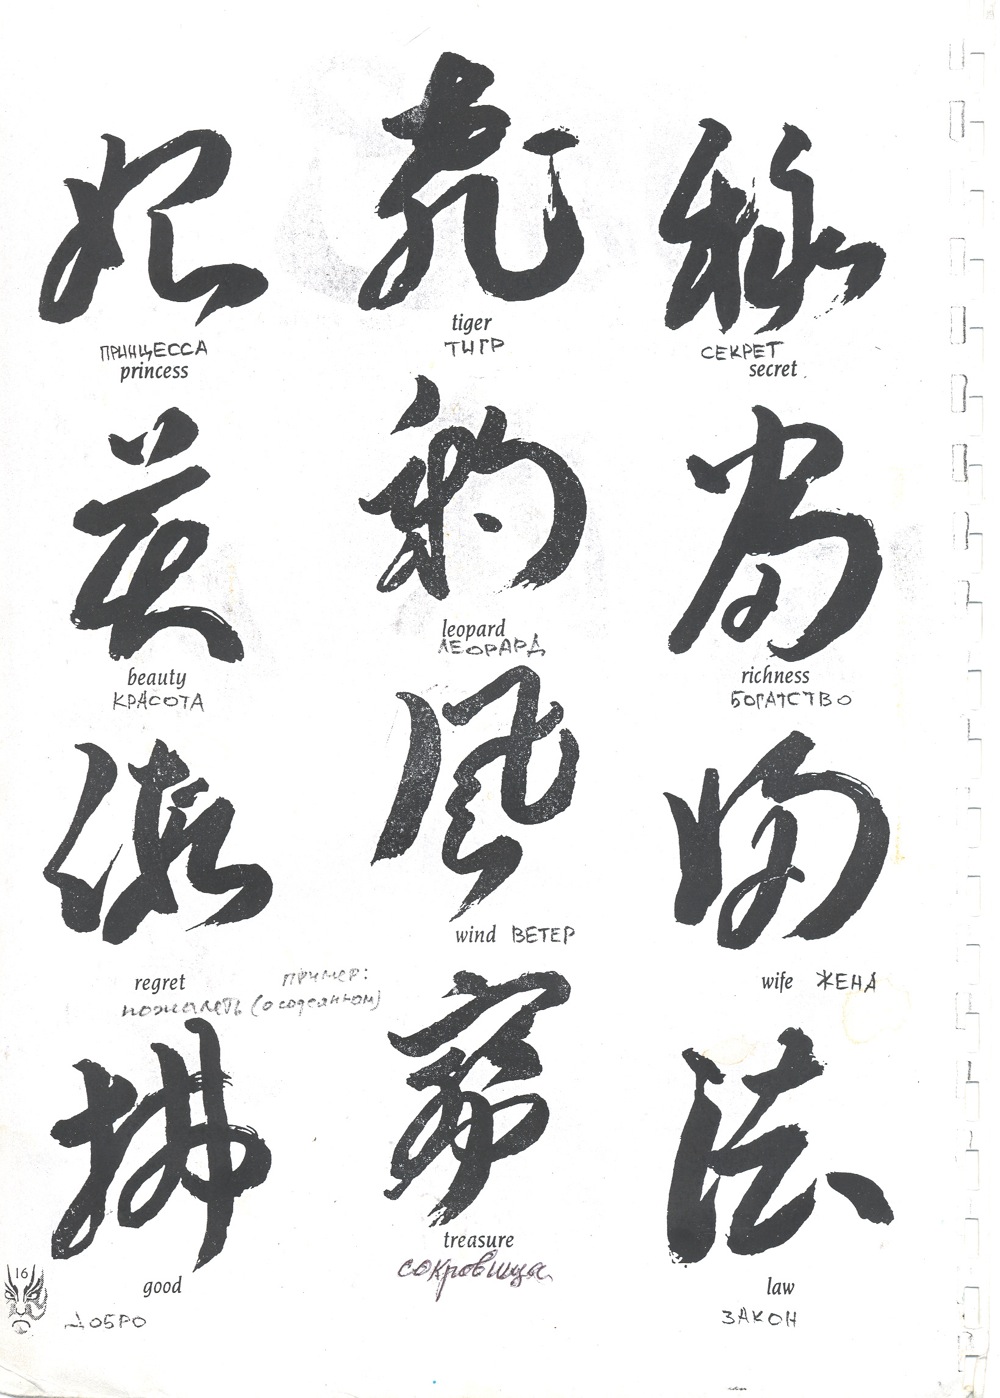 妃
虎
秘
tiger
ТИГР
ПРИНЦЕССА
princess
СЕКРЕТ
secret
英
豹
富
leopard
ЛЕОРАРД
beauty
КРАСОТА
richness
БОГАТСТВО
風
wind ВЕТЕР
regret
ПРИМЕР:
пожалеть (о содеянном)
wife ЖЕНА
拂
法
treasure
сокровища
good
ДОБРО
law
ЗАКОН
16